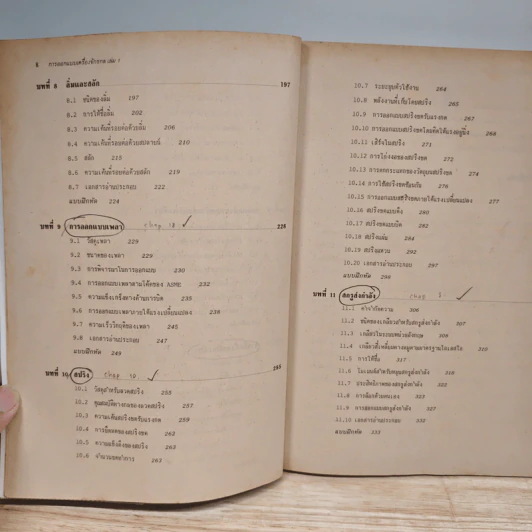 8 การออกแบบเครื่องจักรกล เล่ม 1
บทที่ 8 ลิ่มและสลัก 197
8.1 ชนิดของลิ่ม 197
8.2 การใช้ลิ่ม 202
8.3 ความเค้นที่รอยต่อด้วยลิ่ม 206
8.4 ความเค้นที่รอยต่อด้วยสปลายน์ 210
8.5 สลัก 215
8.6 ความเค้นที่รอยต่อด้วยสลัก 219
8.7 เอกสารอ่านประกอบ 222
แบบฝึกหัด 224
บทที่ 9 การออกแบบเพลา chap 18. 228
9.1 วัสดุเพลา 229
9.2 ขนาดของเพลา 229
9.3 การพิจารณาในการออกแบบ 230
9.4 การออกแบบเพลาตามโค้ดของ ASME 232
9.5 ความแข็งเกร็งทางด้านการบิด 235
9.6 การออกแบบเพลาภายใต้แรงเปลี่ยนแปลง
9.7 ความเร็ววิกฤตของเพลา 245
9.8 เอกสารอ่านประกอบ 247
แบบฝึกหัด 249
บทที่ 10 สปริง chap 10. 255
10.1 วัสดุสำหรับลวดสปริง 255
10.2 คุณสมบัติทางกลของลวดสปริง 258
10.3 ความเค้นสปริงขดรับแรงกด 259
10.4 การยืดหดของสปริงขด 263
10.5 ความแข็งตึงของสปริง 263
10.6 จำนวนขดทำการ 263
10.7 ระยะยุบตัวใช้งาน 264
10.8 พลังงานที่เก็บโดยสปริง 265
10.9 การออกแบบสปริงขดรับแรงกด 267
10.10 การออกแบบสปริงขดโดยคิดให้แรงอยู่นิ่ง 268
10.11 เสิร์จในสปริง 271
10.12 การโก่งงอของสปริงขด 273
10.13 การกดกระแทกของโหลดบนสปริงขด 274
10.14 การใช้สปริงขดซ้อนกัน 276
10.15 การออกแบบสปริงขดภายใต้แรงเปลี่ยนแปลง 277
10.16 สปริงขดแบบดึง 280
10.17 สปริงขดแบบบิด 282
10.18 สปริงแผ่น 284
10.19 สปริงแหวน 291
10.20 เอกสารอ่านประกอบ 297
แบบฝึกหัด 299
บทที่ 11 สกรูส่งกำลัง chap
11.1 คำจำกัดความ 308
11.2 ชนิดของเกลียวสำหรับสกรูส่งกำลัง 308
11.3 เกลียวในระบบหน่วยอังกฤษ 308
11.4 เกลียวสี่เหลี่ยมคางหมูตามมาตรฐานไอเอสโอ 310
11.5 การใช้ชื่อ 317
11.6 โมเมนต์สำหรับหมุนสกรูส่งกำลัง 317
11.7 ประสิทธิภาพของสกรูส่งกำลัง 321
11.8 การล็อกด้วยตนเอง 322
11.9 การออกแบบสกรูส่งกำลัง 327
11.10 เอกสารอ่านประกอบ 332
แบบฝึกหัด 333